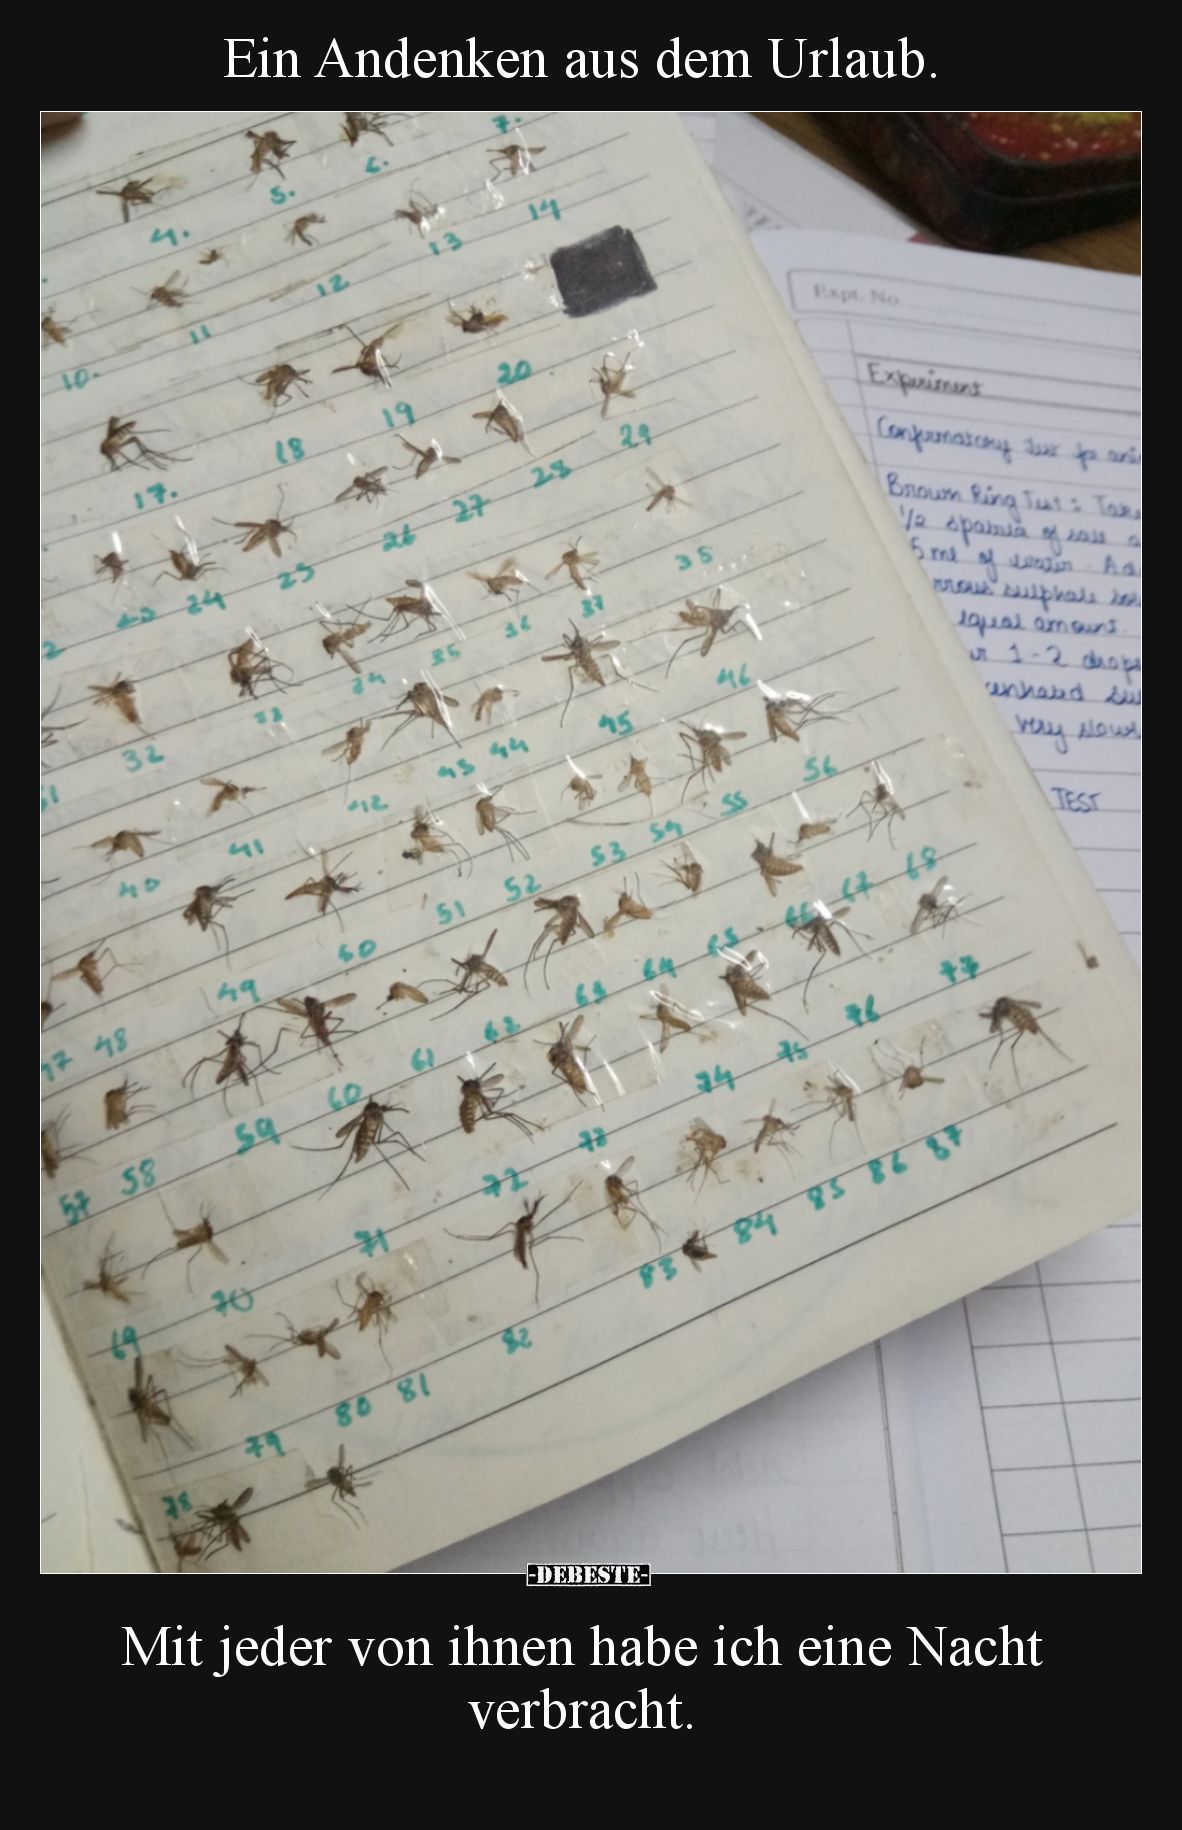 Ein Andenken aus dem Urlaub.
7.
6.
5.
4.
14
13
12
11
10.
20
19
18
17.
29
28
27
26
25
24
23
35
37
36
35
34
33
32
46
45
44
43
42
41
40
56
55
54
53
52
51
50
49
48
47
68
67
66
65
64
63
62
61
60
59
58
57
77
76
75
74
73
72
71
70
69
87
86
85
84
83
82
81
80
79
78
Expt. No.
Experiment
Confirmatory test for
Brown Ring Test : Take
1/2 spatula of
5 ml of water. Ad
sulphate
equal amount.
1-2 drops
very slow
TEST
-DEBESTE-
Mit jeder von ihnen habe ich eine Nacht
verbracht.